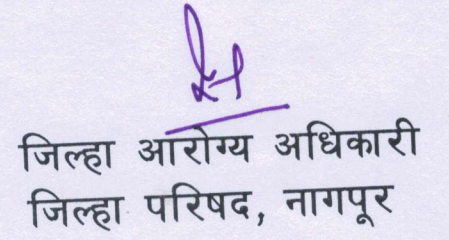 जिल्हा आरोग्य अधिकारी
जिल्हा परिषद, नागपूर